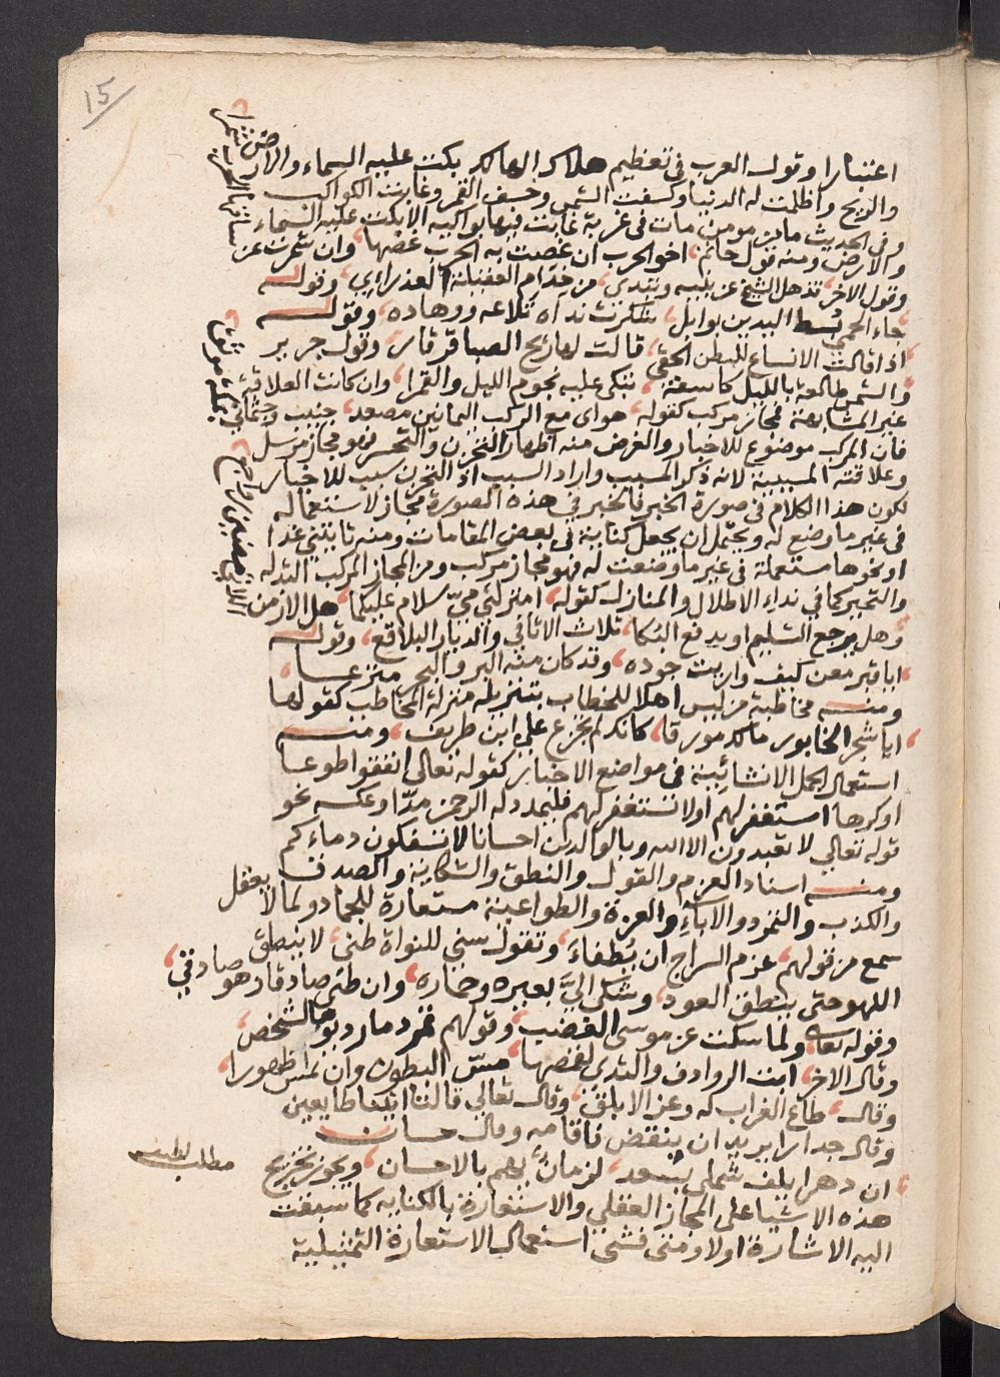 15
اعتبارا وقول العرب في تعظيم هلاك الهالك بكت عليه السماء والارض
والريح واظلمت له الدنيا وكسفت الشمس وخسف القمر وغابت الكواكب
وفي الحديث ما من مومن مات في غربة غابت فيها بواكيه الا بكت عليه السماء
والارض ومنه قول حاتم، اخو الحرب ان عضت به الحرب عضها، وان شمرت عن ساقها الحرب شمرا،
وقول الاخر، تذهل الشيخ عن بنيه وتبدي، عن خدام العقيلة العذراء، وقوله
جاد الحمى بسط اليدين بوابل، شكرت نداه تلاعه ووهاده، وقوله
اذا قالت الانساع للبطن الحقي، قالت له ريح الصبا قرقار، وقول جرير
والشمس طالعة بالليل كاسفة، تبكي عليك نجوم الليل والقمرا، وان كانت العلاقة
غير المشابهة فمجاز مركب كقوله، هواى مع الركب اليمانين مصعد، جنيب وجثماني بمكة موثق،
فان المركب موضوع للاخبار والغرض منه اظهار التحزن والتحسر فهو مجاز مرسل
وعلاقته المسببية لانه ذكر المسبب واراد السبب اذ التحزن سبب للاخبار
لكون هذا الكلام في صورة الخبر فالخبر في هذه الصورة مجاز لاستعماله
في غير ما وضع له ويحتمل ان يجعل كناية في بعض المقامات ومنه تابتني غدا
او نحوها مستعملة في غير ما وضعت له فهو مجاز مركب ومن المجاز المركب التدله
والتحير كما في نداء الاطلال والمنازل كقوله، امنزلتي مي سلام عليكما، هل الازمن اللاتي مضين رواجع،
وهل يرجع التسليم او يدفع البكا، ثلاث الاثافي والديار البلاقع، وقوله
ايا قبر معن كيف واريت جوده، وقد كان منه البر والبحر مترعا،
ومنه مخاطبة من ليس اهلا للخطاب بتنزيله منزلة المخاطب كقولها
ايا شجر الخابور مالك مورقا، كانك لم تجزع على ابن طريف، ومنه
استعمال الجمل الانشائية في مواضع الاخبار كقوله تعالى انفقوا طوعا
او كرها استغفر لهم او لا تستغفر لهم فليمدد له الرحمن مدا وعكسه نحو
قوله تعالى لا تعبدون الا الله وبالوالدين احسانا لا تسفكون دماءكم
ومنه اسناد العزم والقول والنطق والشكاية والصدق
والكذب والتمرد والاباء والعزة والطواعية مستعارة للجماد ولما لا يعقل
سمع من قولهم، عزم السراج ان يطفاء، وتقول سني للنواة طني، لا ينطق
اللهو حتى ينطق العود، وشكى الي بعيره وحماره، وان ظني صادق ارهو صادقي،
وقوله تعالى ولما سكت عن موسى الغضب، وقولهم تمرد مارد وعز الشخص،
وقال الاخر، ابت الروادف والثدي لقمصها، مس البطون وان تمس ظهورا،
وقال، طاع الغراب له وعز الابلق، وقال تعالى قالتا اتينا طايعين
وقال جدارا يريد ان ينقض فاقامه وقال حسان
ان دهرا يلف شملي بسعد، لزمان يهم بالاحسان، ويجوز تخريج
هذه الاشيا على المجاز العقلي والاستعارة بالكنايه كما سبقت
اليه الاشارة اولا ومتى فشى استعمال الاستعارة التمثيلية
مطلب لطيف